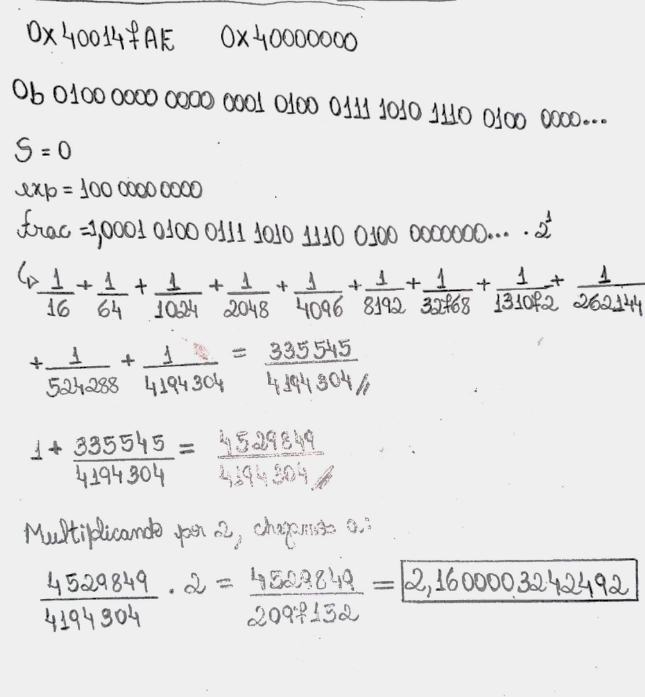 0x400147AE 0x40000000
0b 0100 0000 0000 0001 0100 0111 1010 1110 0100 0000...
S = 0
exp = 100 0000 0000
frac = 1,0001 0100 0111 1010 1110 0100 0000000... . 2¹
↳ 1/16 + 1/64 + 1/1024 + 1/2048 + 1/4096 + 1/8192 + 1/32768 + 1/131072 + 1/262144
+ 1/524288 + 1/4194304 = 335545/4194304 //
1 + 335545/4194304 = 4529849/4194304 //
Multiplicando por 2, chegamos a:
4529849/4194304 . 2 = 4529849/2097152 = 2,1600003242492